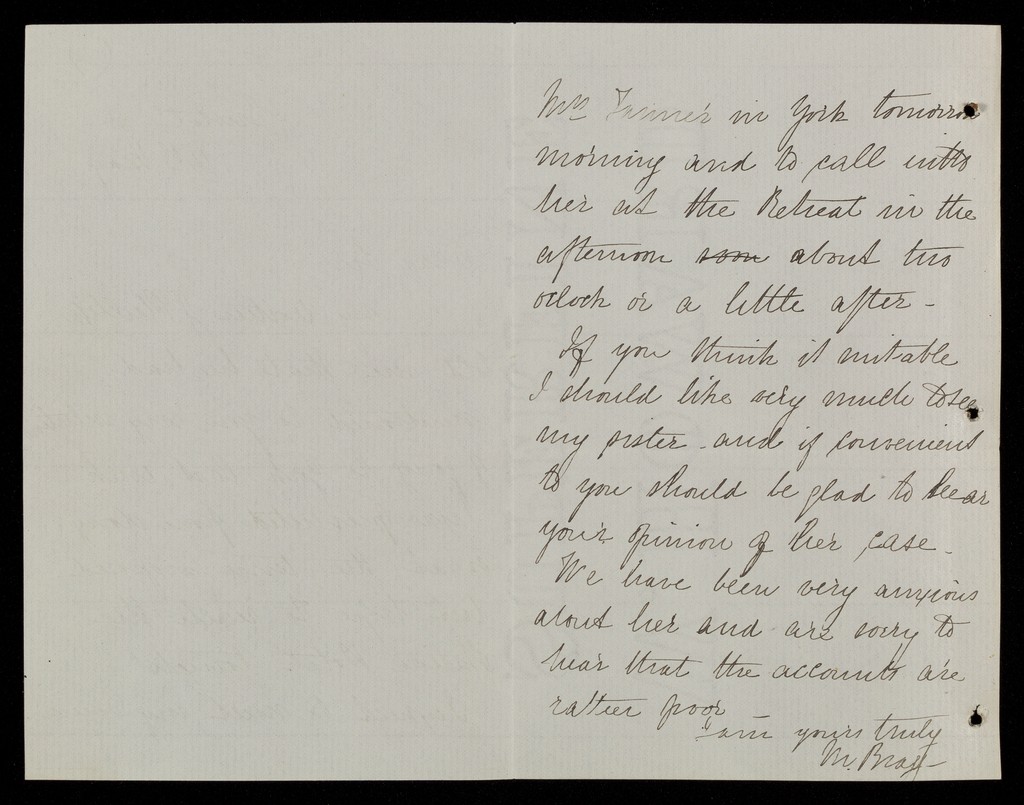 Mrs Farmer in York tomorrow
morning and to call into
her at the Retreat in the
afternoon soon about two
oclock or a little after –
If you think it suitable
I should like very much to see
my sister – and if convenient
to you should be glad to hear
your opinion of her case –
We have been very anxious
about her and are sorry to
hear that the accounts are
rather poor
I am yours truly
M. Bray